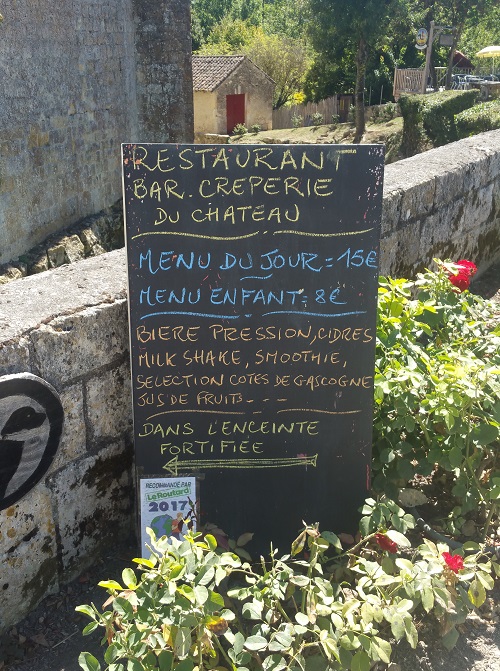 RESTAURANT
BAR. CREPERIE
DU CHATEAU
MENU DU JOUR = 15€
MENU ENFANT = 8€
BIERE PRESSION, CIDRES
MILK SHAKE, SMOOTHIE,
SELECTION COTES DE GASCOGNE
JUS DE FRUITS - - -
DANS L'ENCEINTE
FORTIFIÉE
RECOMMANDÉ PAR
Le Routard
2017